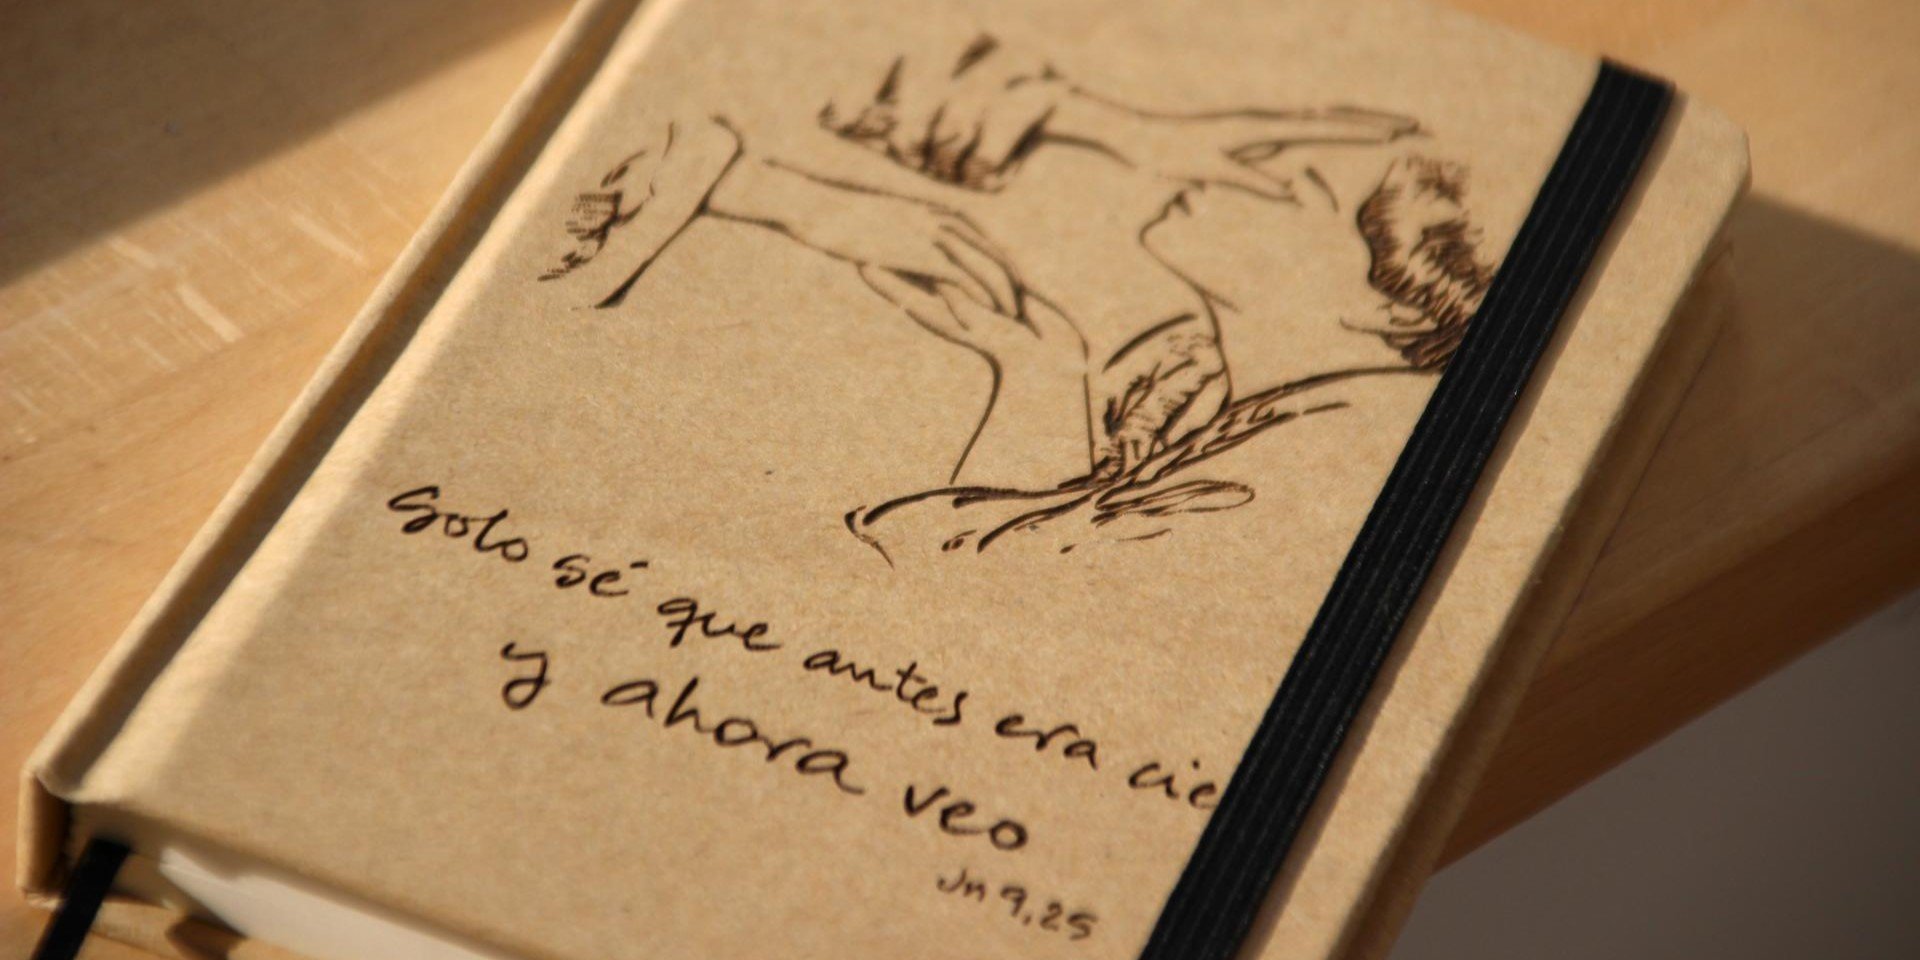 Solo sé que antes era cie
y ahora veo
Jn 9,25